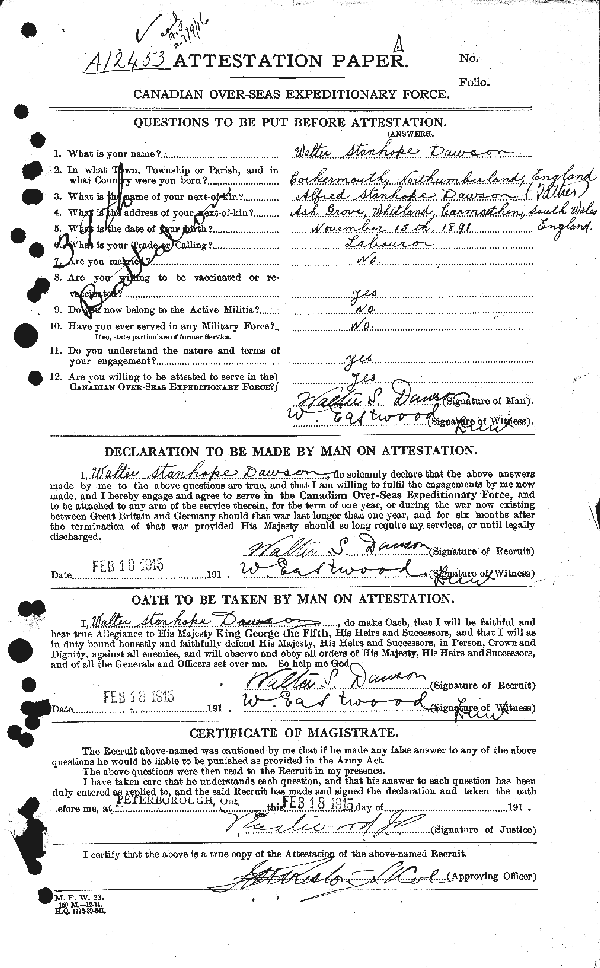 A12453 ATTESTATION PAPER. No.
Folio.
CANADIAN OVER-SEAS EXPEDITIONARY FORCE.
QUESTIONS TO BE PUT BEFORE ATTESTATION.
(ANSWERS.
1. What is your name? Walter Stanhope Dawson
2. In what Town, Township or Parish, and in
what Country were you born? Cockermouth, Northumberland, England
3. What is the name of your next-of-kin? Alfred Stanhope Dawson (Father)
4. What is the address of your next-of-kin? Ash Grove, Whitland, Carmarthen, South Wales
5. What is the date of your birth? November 15th 1891 England.
6. What is your Trade or Calling? Labourer
7. Are you married? No
8. Are you willing to be vaccinated or re-
vaccinated? yes
9. Do you now belong to the Active Militia? No
10. Have you ever served in any Military Force? No.
If so, state particulars of former Service.
11. Do you understand the nature and terms of
your engagement? yes
12. Are you willing to be attested to serve in the Yes
CANADIAN OVER-SEAS EXPEDITIONARY FORCE?
Walter S. Dawson (Signature of Man).
W. Eastwood (Signature of Witness).
DECLARATION TO BE MADE BY MAN ON ATTESTATION.
I, Walter Stanhope Dawson, do solemnly declare that the above answers
made by me to the above questions are true, and that I am willing to fulfil the engagements by me now
made, and I hereby engage and agree to serve in the Canadian Over-Seas Expeditionary Force, and
to be attached to any arm of the service therein, for the term of one year, or during the war now existing
between Great Britain and Germany should that war last longer than one year, and for six months after
the termination of that war provided His Majesty should so long require my services, or until legally
discharged.
Walter S. Dawson (Signature of Recruit)
Date FEB 18 1915 191 W Eastwood (Signature of Witness)
OATH TO BE TAKEN BY MAN ON ATTESTATION.
I, Walter Stanhope Dawson, do make Oath, that I will be faithful and
bear true Allegiance to His Majesty King George the Fifth, His Heirs and Successors, and that I will as
in duty bound honestly and faithfully defend His Majesty, His Heirs and Successors, in Person, Crown and
Dignity, against all enemies, and will observe and obey all orders of His Majesty, His Heirs and Successors,
and of all the Generals and Officers set over me. So help me God.
Walter S. Dawson (Signature of Recruit)
Date FEB 18 1915 191 W. Eastwood (Signature of Witness)
CERTIFICATE OF MAGISTRATE.
The Recruit above-named was cautioned by me that if he made any false answer to any of the above
questions he would be liable to be punished as provided in the Army Act.
The above questions were then read to the Recruit in my presence.
I have taken care that he understands each question, and that his answer to each question has been
duly entered as replied to, and the said Recruit has made and signed the declaration and taken the oath
before me, at PETERBOROUGH, Ont. this FEB 18 1915 day of 191 .
(Signature of Justice)
I certify that the above is a true copy of the Attestation of the above-named Recruit.
(Approving Officer)
M. F. W. 23.